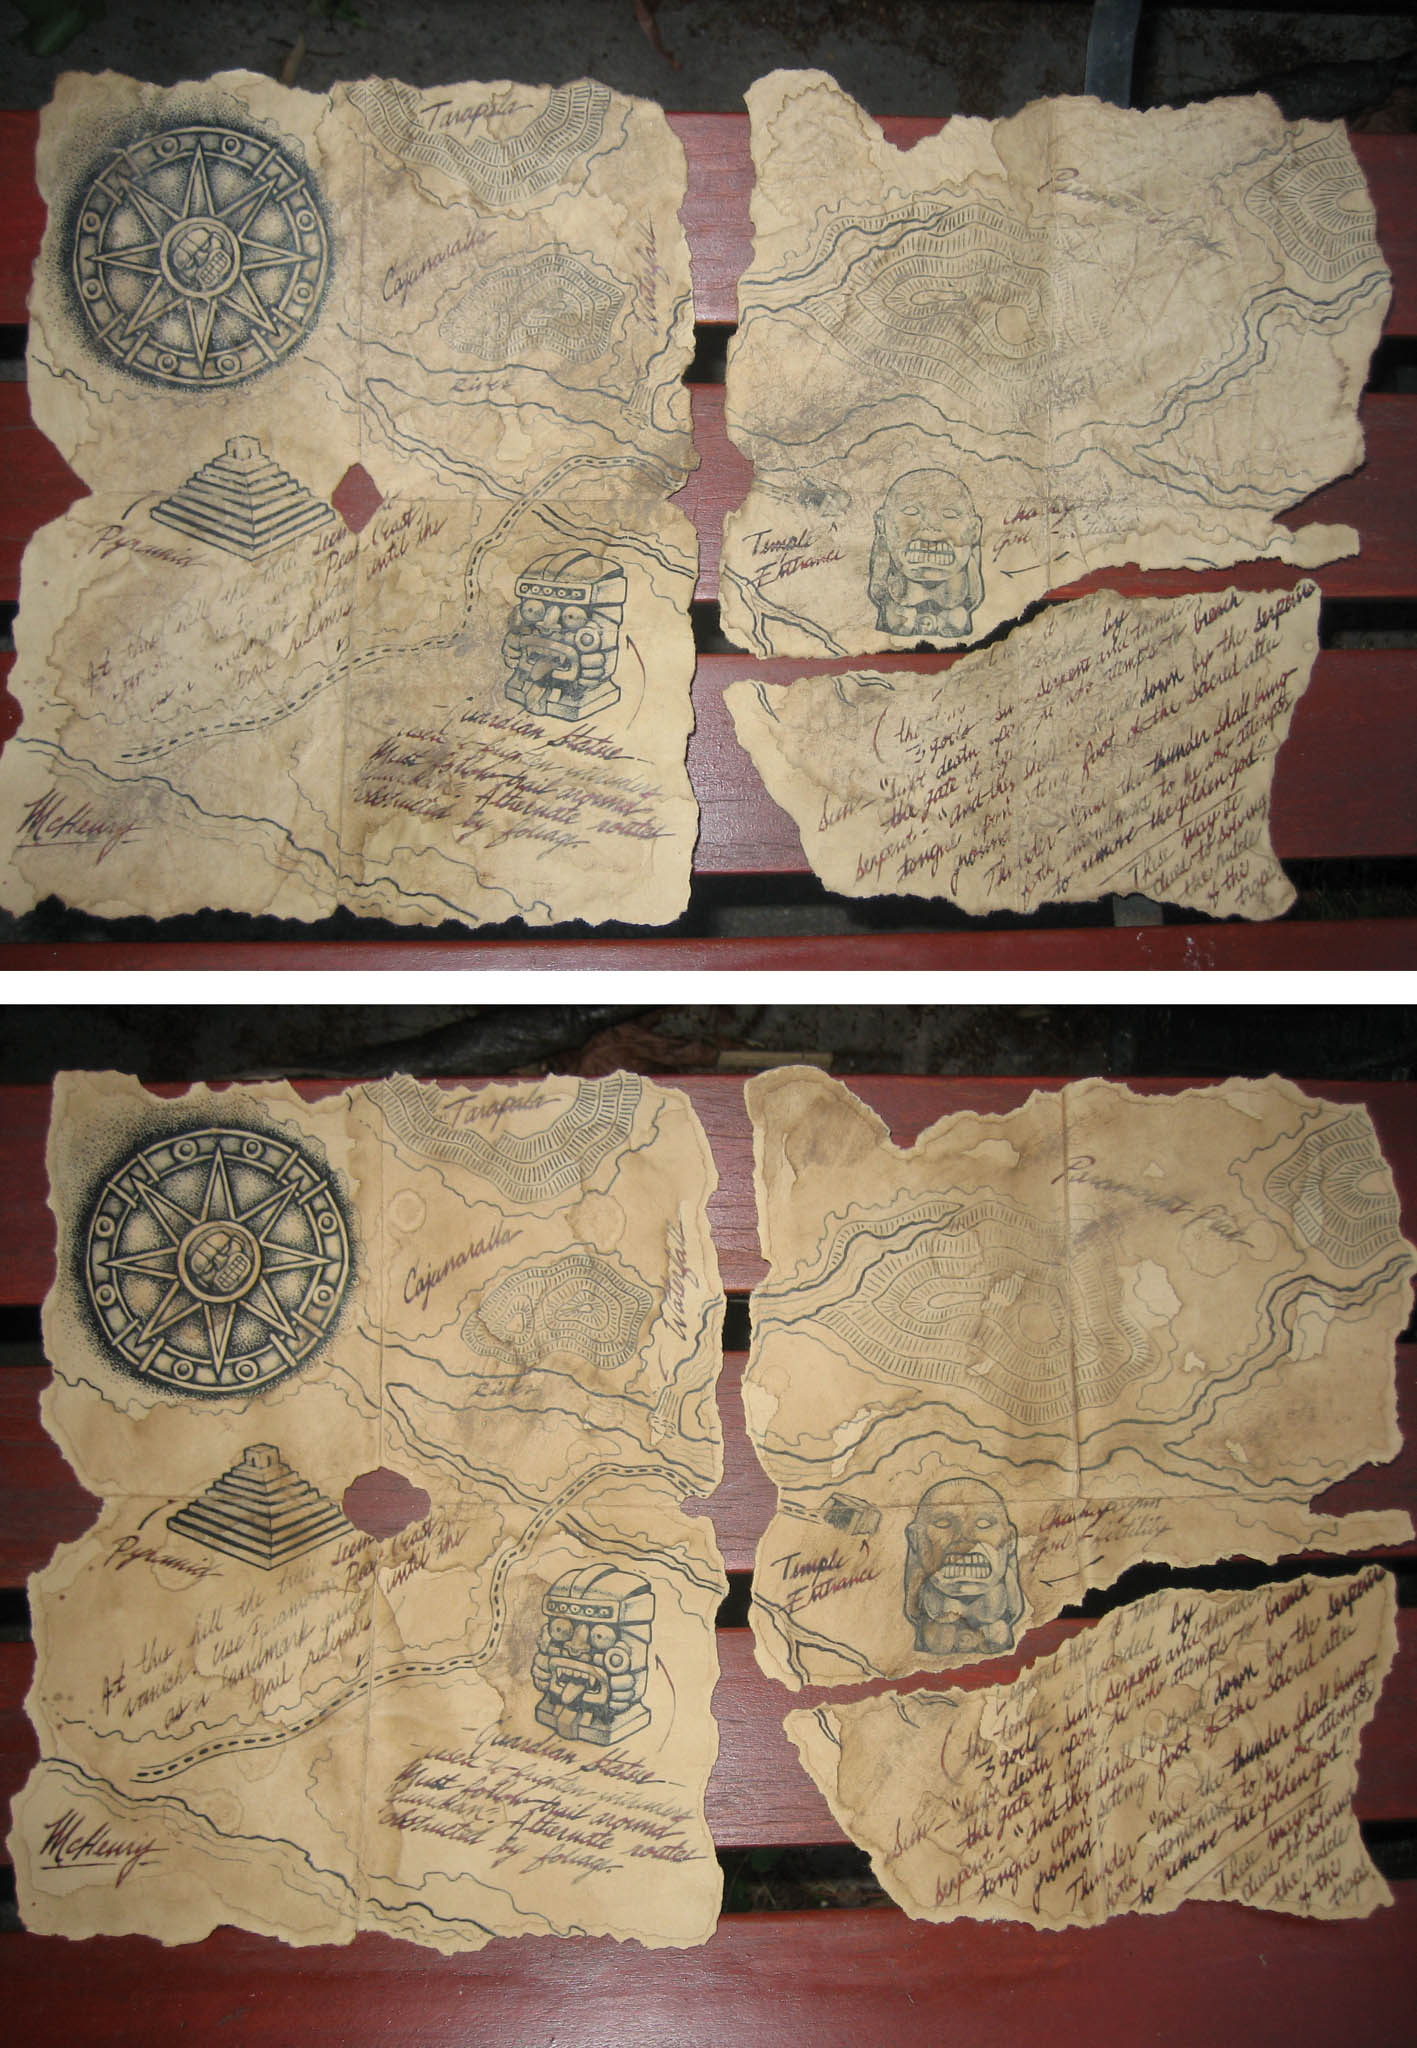 Tarapala
Cajunaralla
Waterfall
River
Pyramid
At this hill the trail seem
Peak East
as a landmark until the
trail
McHenry
Guardian Statue
used to frighten intruders
Must follow trail around
Guardian. Alternate routes
obstructed by foliage.
Temple
Entrance
God
it that
by
3 gods - sun, serpent and thunder
Sun - "swift death upon he who attempts to breach
the gate of light."
serpent - "and they shall be down by the serpents
tongue upon setting foot of the sacred alter
ground
Thunder - "and the thunder shall bring
forth entombment to he who attempts
to remove the golden god."
These may be
clues to solving
the riddle
of the
traps.
Tarapala
Cajunaralla
Waterfall
River
Pyramid
At this hill the trail seem
vanish. Use Paramount Peak East
as a landmark until the
trail resumes
McHenry
Guardian Statue
used to frighten intruders
Must follow trail around
Guardian. Alternate routes
obstructed by foliage.
Paramount Peak
Temple
Entrance
God fertility
Legend has it that
the temple is guarded by
3 gods - sun, serpent and thunder
Sun - "swift death upon he who attempts to breach
the gate of light."
serpent - "and they shall be struck down by the serpents
tongue upon setting foot of the sacred alter
ground"
Thunder - "and the thunder shall bring
forth entombment to he who attempts
to remove the golden god."
These may be
clues to solving
the riddle
of the
traps.